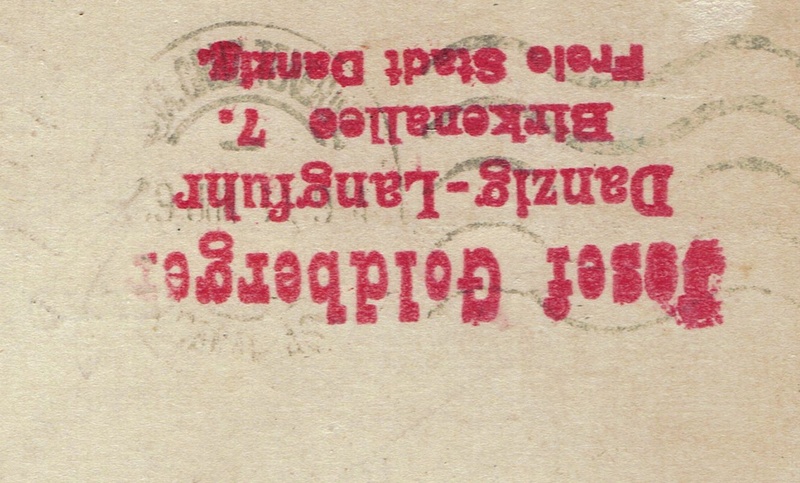 Josef Goldberger
Danzig-Langfuhr
Birkenallee 7.
Freie Stadt Danzig.